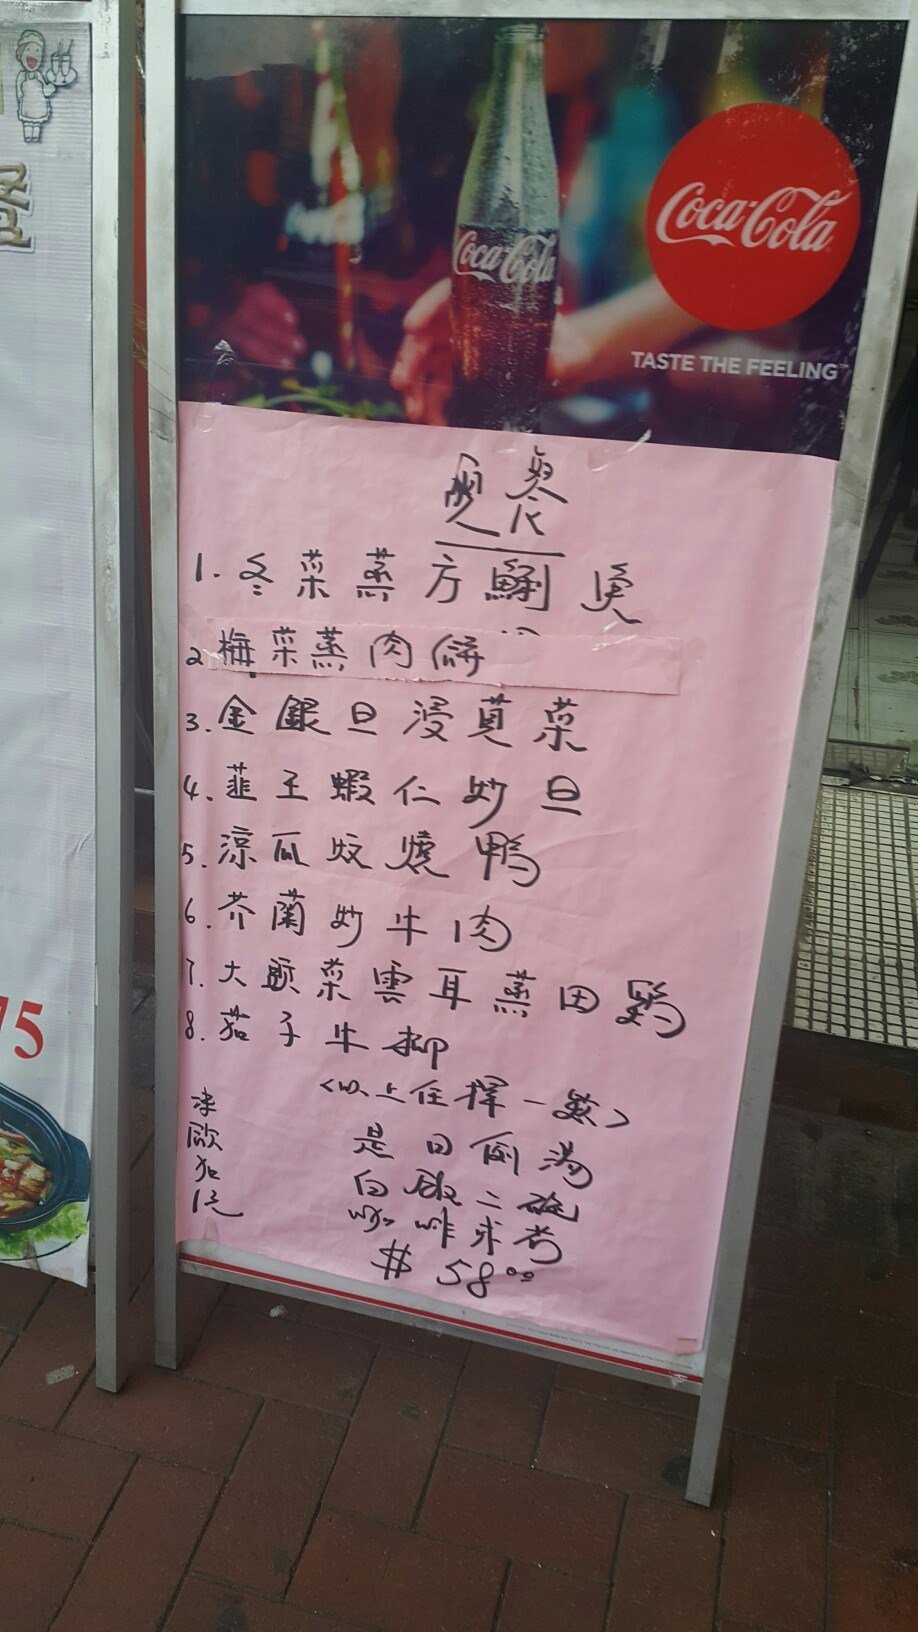 Coca-Cola
Coca-Cola
TASTE THE FEELING
晚餐
1. 冬菜蒸方鯏
2 梅菜蒸肉餅
3. 金銀旦浸莧菜
4. 韮王蝦仁炒旦
5. 涼瓜炆燒鴨
6. 芥蘭炒牛肉
7. 大頭菜雲耳蒸田雞
8. 茄子牛柳
<以上任擇一款>
是日例湯
白飯二碗
$ 58.00
凍飲加
75